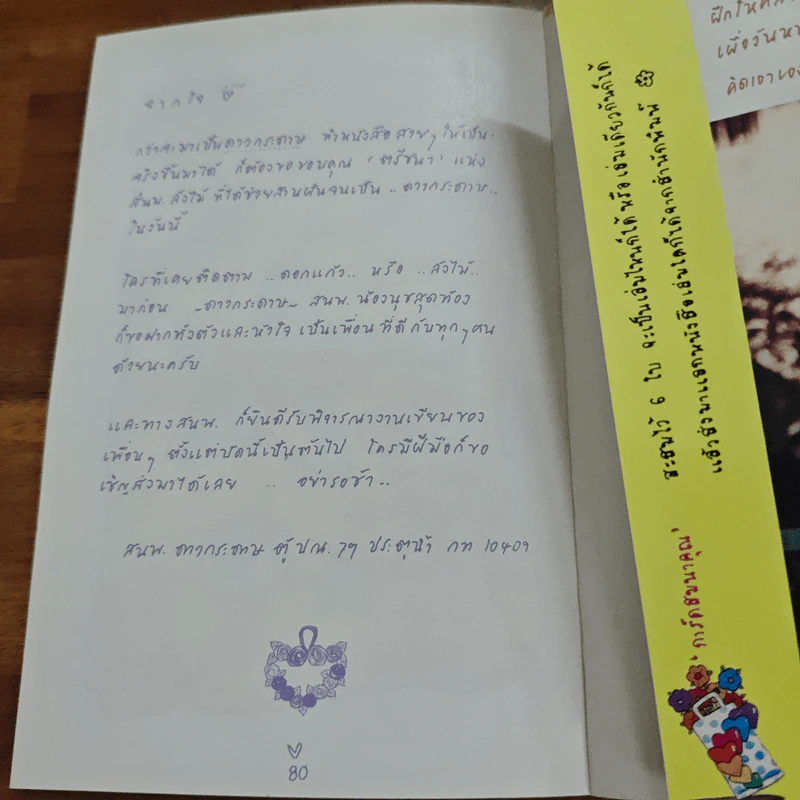 จากใจ
กว่าจะมาเป็นดาวกระดาษ ทำหนังสือสวยๆ ให้เป็น
จริงขึ้นมาได้ ก็ต้องขอขอบคุณ ' ตรีชนา ' แห่ง
สนพ. สังไม้ ที่ได้ช่วยสานฝันจนเป็น .. ดาวกระดาษ..
ในวันนี้
ใครที่เคยติดตาม .. ดอกแก้ว .. หรือ .. สังไม้ ..
มาก่อน ~ดาวกระดาษ~ สนพ. น้องนุชสุดท้อง
ก็ขอฝากทั้งตัวและหัวใจ เป็นเพื่อนที่ดีกับทุกๆ คน
ด้วยนะครับ
และทางสนพ. ก็ยินดีรับพิจารณางานเขียนของ
เพื่อนๆ ตั้งแต่บัดนี้เป็นต้นไป ใครมีฝีมือก็ขอ
เชิญส่งมาได้เลย .. อย่ารอช้า..
สนพ. ดาวกระดาษ ตู้ ปณ. ประตูน้ำ กท 10409
80
ฝึกให้
เผื่อวันหน
คิดเอาเอง
สะสมไว้ 6 ใบ จะเป็นเล่มไหนก็ได้ หรือ เล่มเดียวกันก็ได้
แล้วส่งมาแลกหนังสือเล่มใดก็ได้จากสำนักพิมพ์
' การ์ดสมนาคุณ '